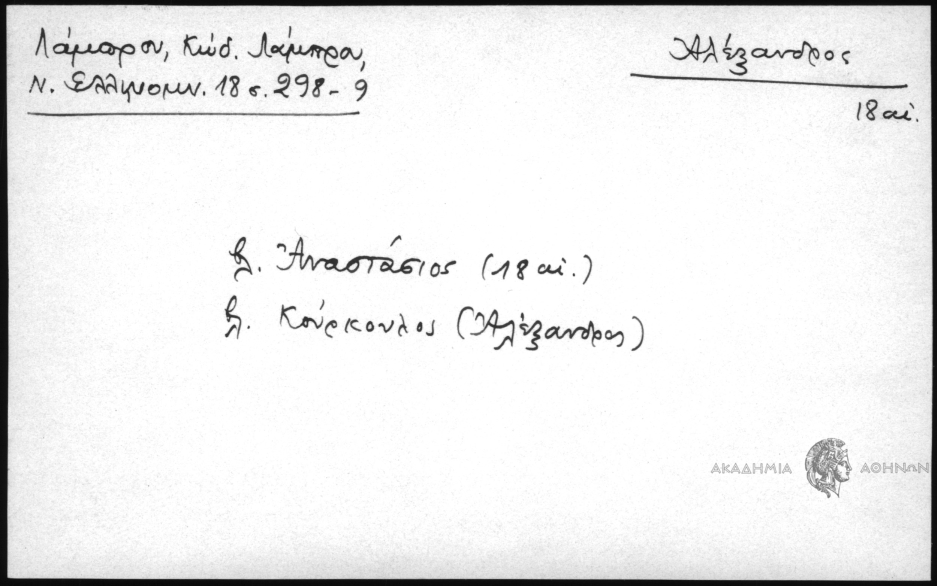 Λάμπρου, Κώδ. Λάμπρου,
Ν. Ελληνομν. 18 σ. 298-9
Ἀλέξανδρος
18 αἰ.
βλ. Ἀναστάσιος (18 αἰ.)
βλ. Κούρκουλος (Ἀλέξανδρος)
ΑΚΑΔΗΜΙΑ ΑΘΗΝΩΝ